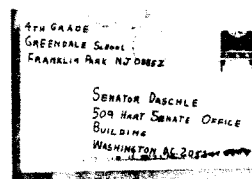 4TH GRADE
GREENDALE SCHOOL
FRANKLIN PARK NJ 08852
SENATOR DASCHLE
509 HART SENATE OFFICE
BUILDING
WASHINGTON DC 2051